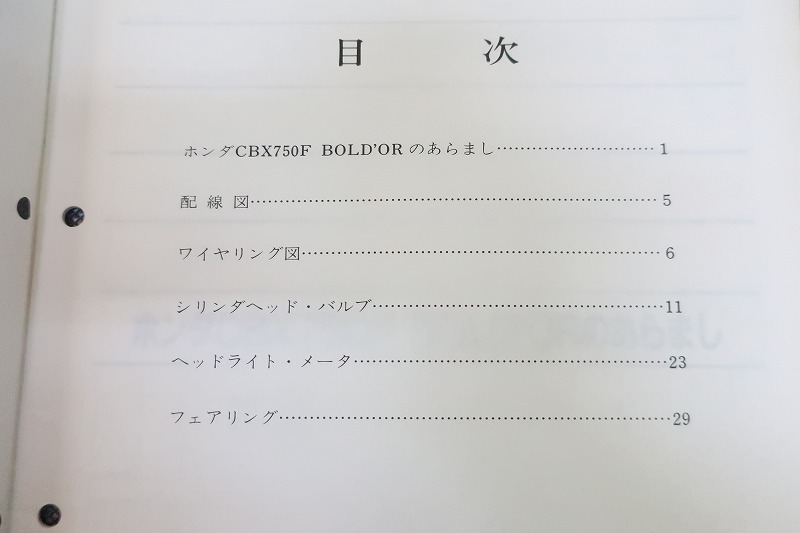 目 次
ホンダCBX750F BOLD'OR のあらまし………………………1
配 線 図………………………………………………………………5
ワイヤリング図………………………………………………………6
シリンダヘッド・バルブ……………………………………………11
ヘッドライト・メータ………………………………………………23
フェアリング…………………………………………………………29